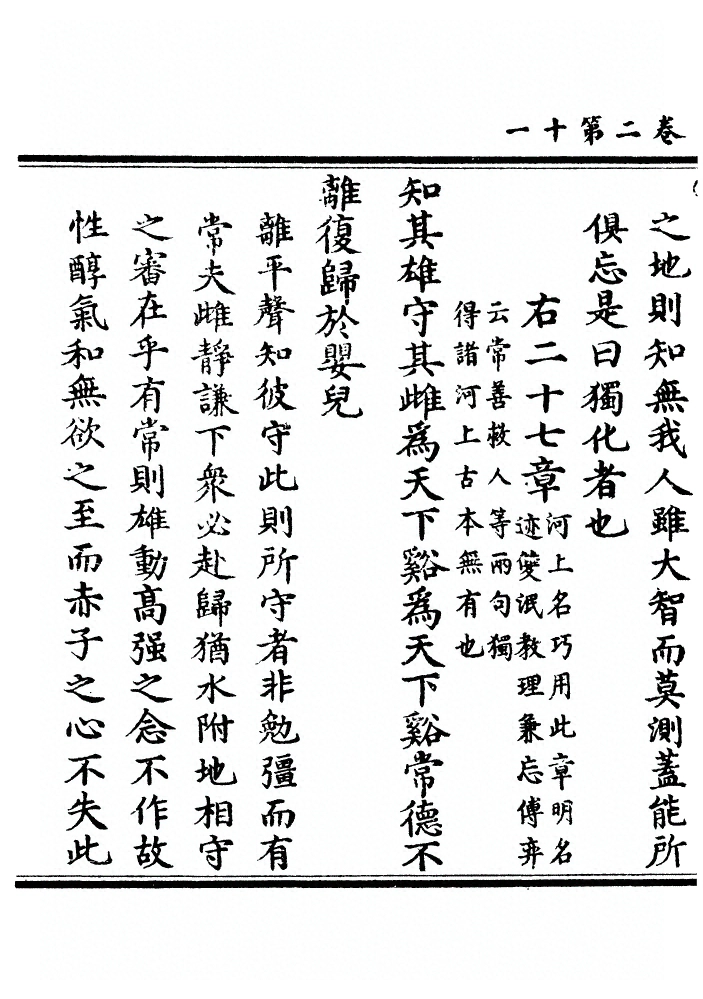 卷二第十一
之地則知無我人雖大智而莫測蓋能所
俱忘是曰獨化者也
右二十七章
河上名巧用此章明名
迹雙泯教理兼忘傅奕
云常善救人等兩句獨
得諸河上古本無有也
知其雄守其雌為天下谿為天下谿常德不
離復歸於嬰兒
離平聲知彼守此則所守者非勉彊而有
常夫雌靜謙下衆必赴歸猶水附地相守
之審在乎有常則雄動高强之念不作故
性醇氣和無欲之至而赤子之心不失此